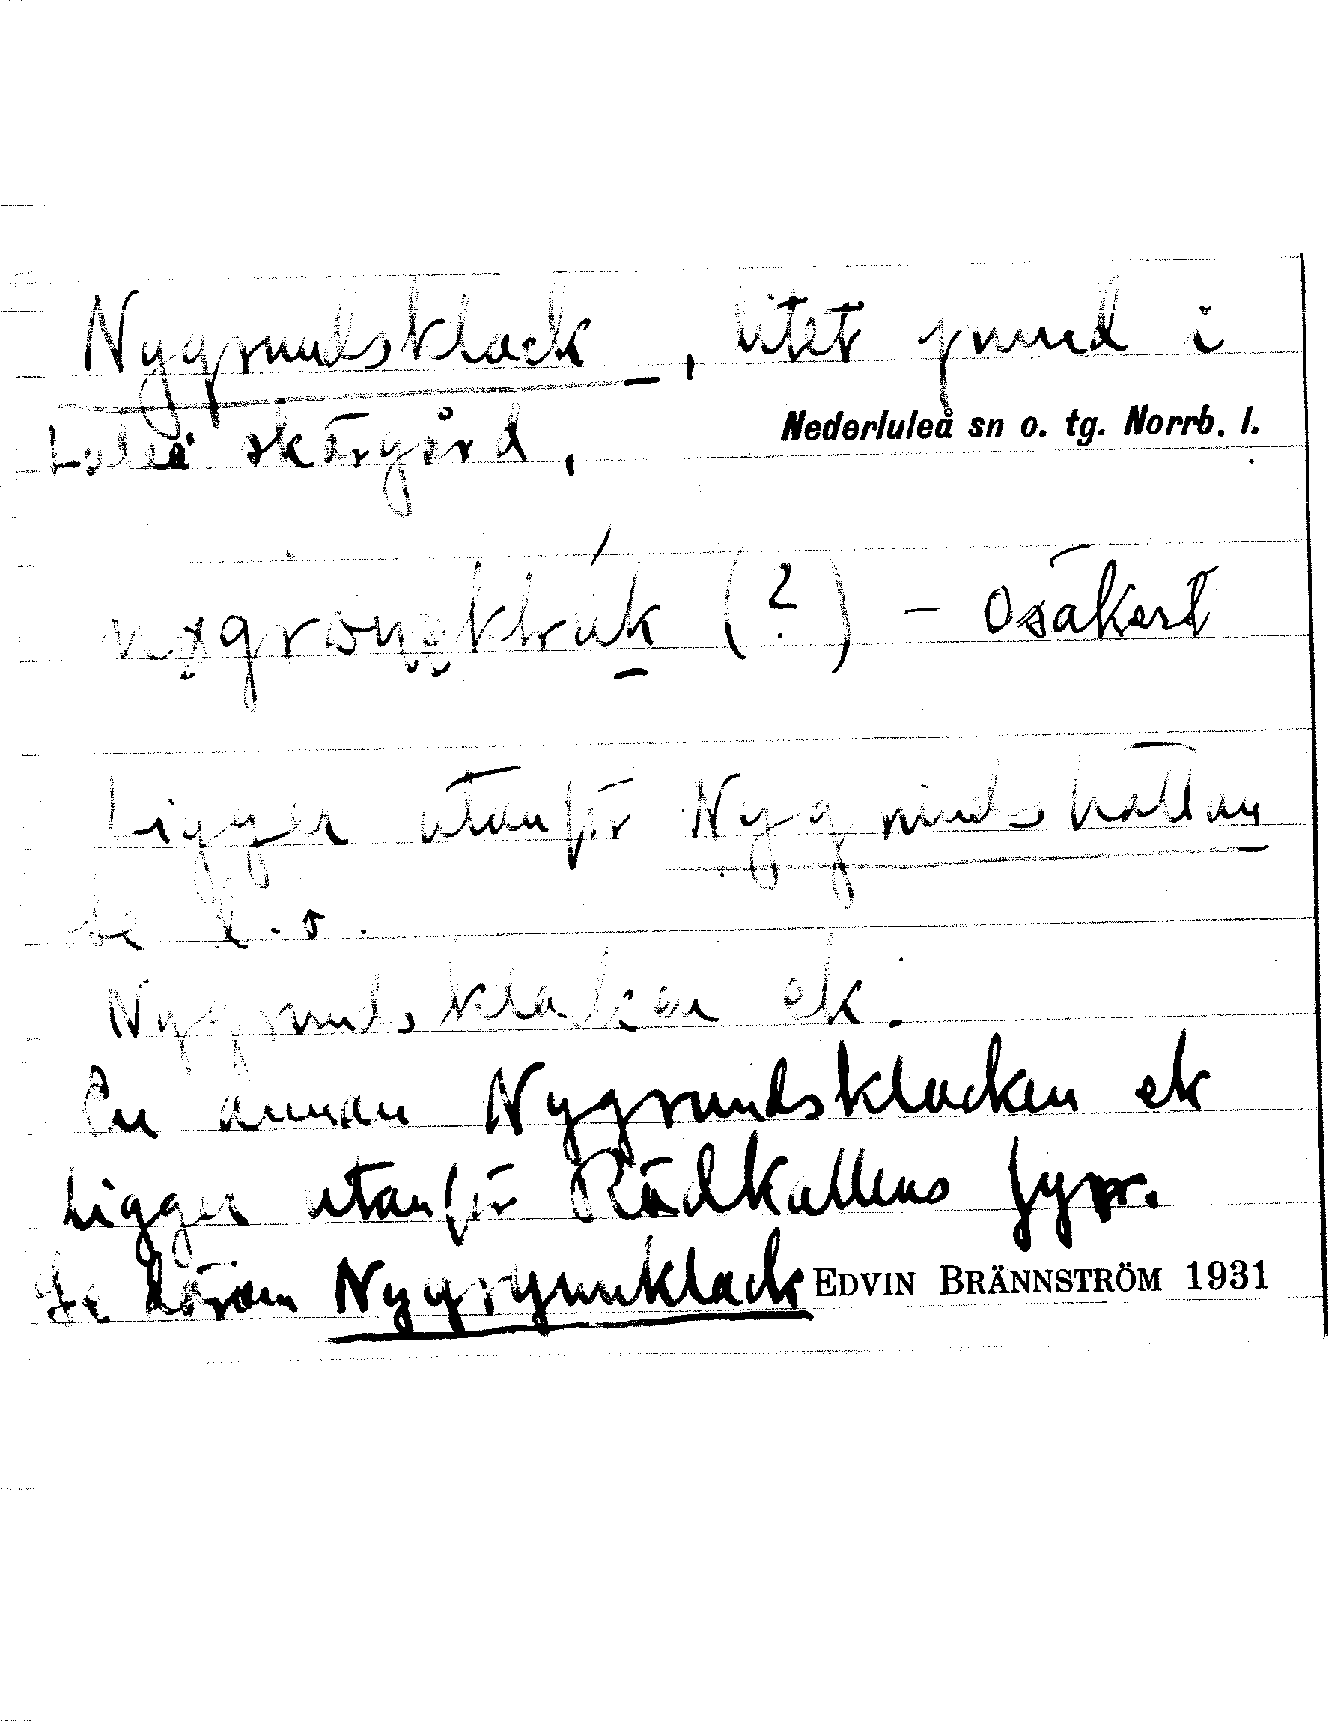 Nygrundsklack, litet grund i
Luleå skärgård,
Nederluleå sn o. tg. Norrb. l.
(?) – osäkert
Ligger utanför Nygrundshällan
se d. o.
Nygrundsklacken ek.
En annan Nygrundsklacken ek
ligger utanför Rödkallens fyr.
Se härom
EDVIN BRÄNNSTRÖM 1931